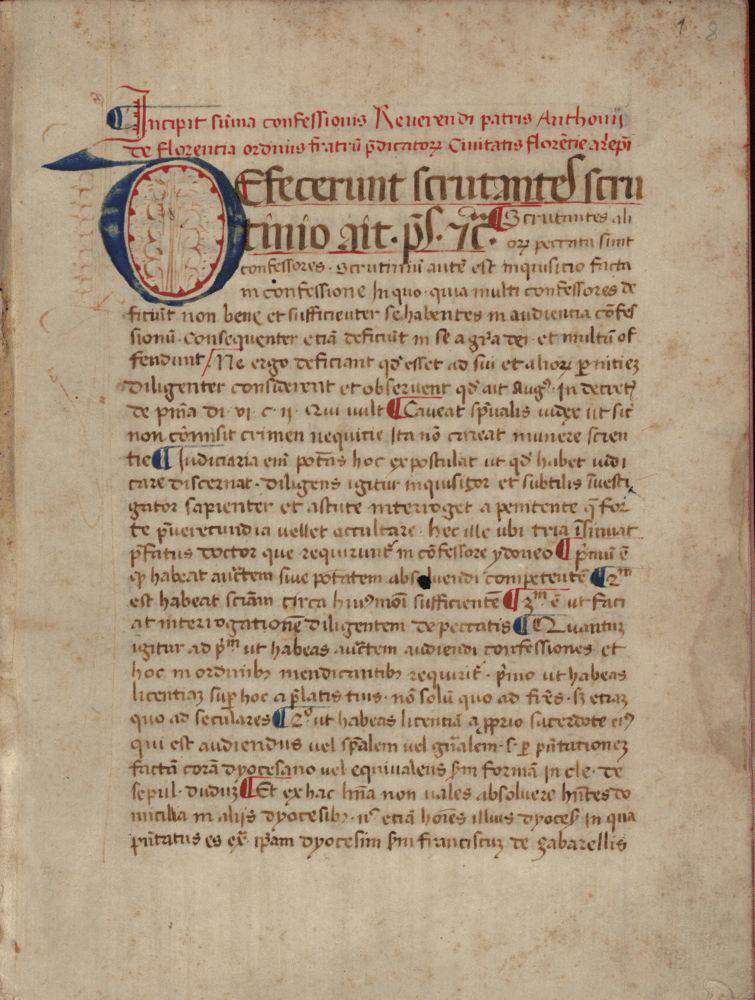 1 8
Incipit sūma confessionis Reuerendi patris Anthonii
de florentia ordinis fratrū p̄dicatoꝝ Ciuitatis florētie arep̄i
DEfecerunt scrutantes scru
tinio ait. ps̄. ⁊c̄. ¶ Scrutantes ali
oꝝ peccata sunt
confessores. Scrutiniū autē est inquisitio facta
in confessione In quo. quia multi confessores de
ficiūt non bene et sufficienter se habentes in audientia cōfes
sionū. Consequenter etiā deficiūt in se a gr̄a dei. et multū of
fendunt / Ne ergo deficiant qd̄ esset ad sui et alioꝝ ꝑnitieꝫ
diligenter considerent et obseruent qd̄ ait Augꝰ. In decret̄
de pn̄ia di. vi. c. ii. Qui uult ¶ Caueat sp̄ualis iudex ut sic
non cōmisit crimen nequitie Ita nō careat munere scien
tie ¶ Iudiciaria eni potās hoc expostulat ut qd̄ habet iudi
care discernat. diligens igitur inquisitor et subtilis īuesti
gator sapienter et astute interroget a penitente q̄ for
te p̄ uerecundia uellet occultare. hec ille ubi tria īsinuat
p̄fatus doctor que requirunt̄ in cōfessore ydoneo ¶ p̄mū ē
ꝙ habeat auct̄em siue potatem absoluendi competentē ¶ 2ᵐ
est habeat sciām circa huiꝰmōi sufficientē ¶ 3ᵐ ē ut faci
at interrogationē diligentem de peccatis ¶ Quantuꝫ
igitur ad p̄ᵐ ut habeas auct̄em audiendi confessiones et
hoc in ordinibꝫ mendicantibꝫ requirit̄. p̄mo ut habeas
licentiaꝫ suꝑ hoc a p̄latis tuis. nō solū quo ad fr̄es. sꝫ etiaꝫ
quo ad seculares ¶ 2ᵒ ut habeas licentiā a ꝓprio sacerdote eiꝰ
qui est audiendus uel sp̄alem uel gn̄alem. s. ꝑ pn̄tationeꝫ
factā corā dyocesano uel equiualens s̄m formā in cle. de
sepul. duduꝫ ¶ Et ex hac lr̄a non uales absoluere hn̄tes do
micilia in alijs dyocesibꝫ. nᶜ etiā hoīes illius dyoces̄ in qua
pn̄tatus es ex̄ ip̄am dyocesim s̄m franciscuꝫ de zabarellis